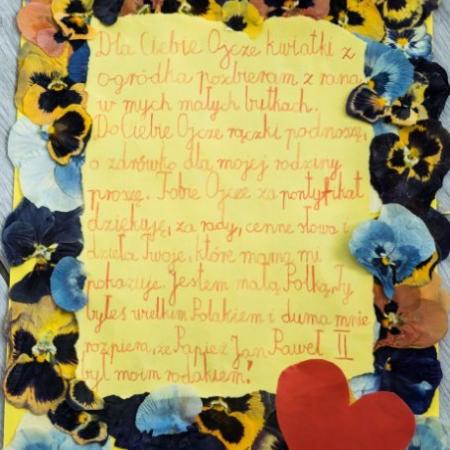 Dla Ciebie Ojcze kwiatki z
ogródka pozbieram z rana
w mych małych butkach.
Do Ciebie Ojcze rączki podnoszę,
o zdrówko dla mojej rodziny
proszę. Tobie Ojcze za pontyfikat
dziękuję, za rady, cenne słowa i
dzieła Twoje, które mama mi
pokazuje. Jestem małą Polką, Ty
byłeś wielkim Polakiem i duma mnie
rozpiera, że Papież Jan Paweł II
był moim rodakiem!